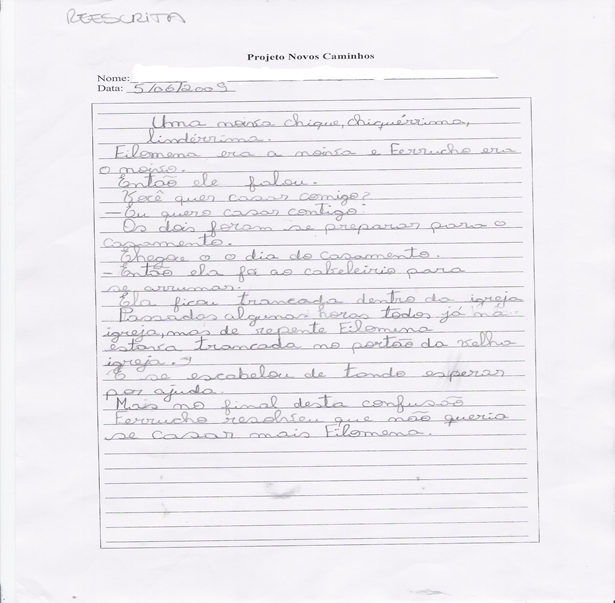 REESCRITA
Projeto Novos Caminhos
Nome:
Data: 5/06/2009
Uma noiva chique, chiquérrima,
lindérrima.
Filomena era a noiva e Ferrucho era
o noivo.
Então ele falou.
Você quer casar comigo?
– Eu quero casar contigo.
Os dois foram se preparar para o
casamento.
Chegou o o dia do casamento.
– Então ela foi ao cabeleirio para
se arrumar.
Ela ficou trancada dentro da igreja
Passados algunas horas todos já na
igreja, mas de repente Filomena
estava trancada no portão da velha
igreja.
E se escabelou de tando esperar
por ajuda.
Mais no final desta confusão
Ferrucho resolveu que não queria
se casar mais Filomena.